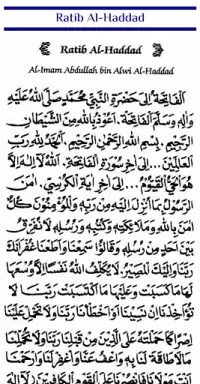 Ratib Al-Haddad
Ratib Al-Haddad
Al-Imam Abdullah bin Alwi Al-Haddad
الْفَاتِحَةُ إِلَى حَضْرَةِ النَّبِيِّ مُحَمَّدٍ صَلَّى اللهُ عَلَيْهِ
وَآلِهِ وَسَلَّمَ الْفَاتِحَةُ. أَعُوْذُ بِاللهِ مِنَ الشَّيْطَانِ
الرَّجِيْمِ. بِسْمِ اللهِ الرَّحْمٰنِ الرَّحِيْمِ. اَلْحَمْدُ لِلّٰهِ رَبِّ
الْعَالَمِيْنَ ... إِلَى آخِرِ سُوْرَةِ الْفَاتِحَةِ. اَللهُ لَا إِلٰهَ إِلَّا
هُوَ الْحَيُّ الْقَيُّوْمُ ... إِلَى آخِرِ آيَةِ الْكُرْسِيِّ. آمَنَ
الرَّسُوْلُ بِمَا أُنْزِلَ إِلَيْهِ مِنْ رَبِّهِ وَالْمُؤْمِنُوْنَ كُلٌّ
آمَنَ بِاللهِ وَمَلَائِكَتِهِ وَكُتُبِهِ وَرُسُلِهِ لَا نُفَرِّقُ
بَيْنَ أَحَدٍ مِنْ رُسُلِهِ وَقَالُوْا سَمِعْنَا وَأَطَعْنَا غُفْرَانَكَ
رَبَّنَا وَإِلَيْكَ الْمَصِيْرُ. لَا يُكَلِّفُ اللهُ نَفْسًا إِلَّا وُسْعَهَا
لَهَا مَا كَسَبَتْ وَعَلَيْهَا مَا اكْتَسَبَتْ رَبَّنَا لَا
تُؤَاخِذْنَا إِنْ نَسِيْنَا أَوْ أَخْطَأْنَا رَبَّنَا وَلَا تَحْمِلْ عَلَيْنَا
إِصْرًا كَمَا حَمَلْتَهُ عَلَى الَّذِيْنَ مِنْ قَبْلِنَا رَبَّنَا وَلَا تُحَمِّلْنَا
مَا لَا طَاقَةَ لَنَا بِهِ وَاعْفُ عَنَّا وَاغْفِرْ لَنَا وَارْحَمْنَا
أَنْتَ مَوْلَانَا فَانْصُرْنَا عَلَى الْقَوْمِ الْكَافِرِيْنَ. لَا إِلٰهَ